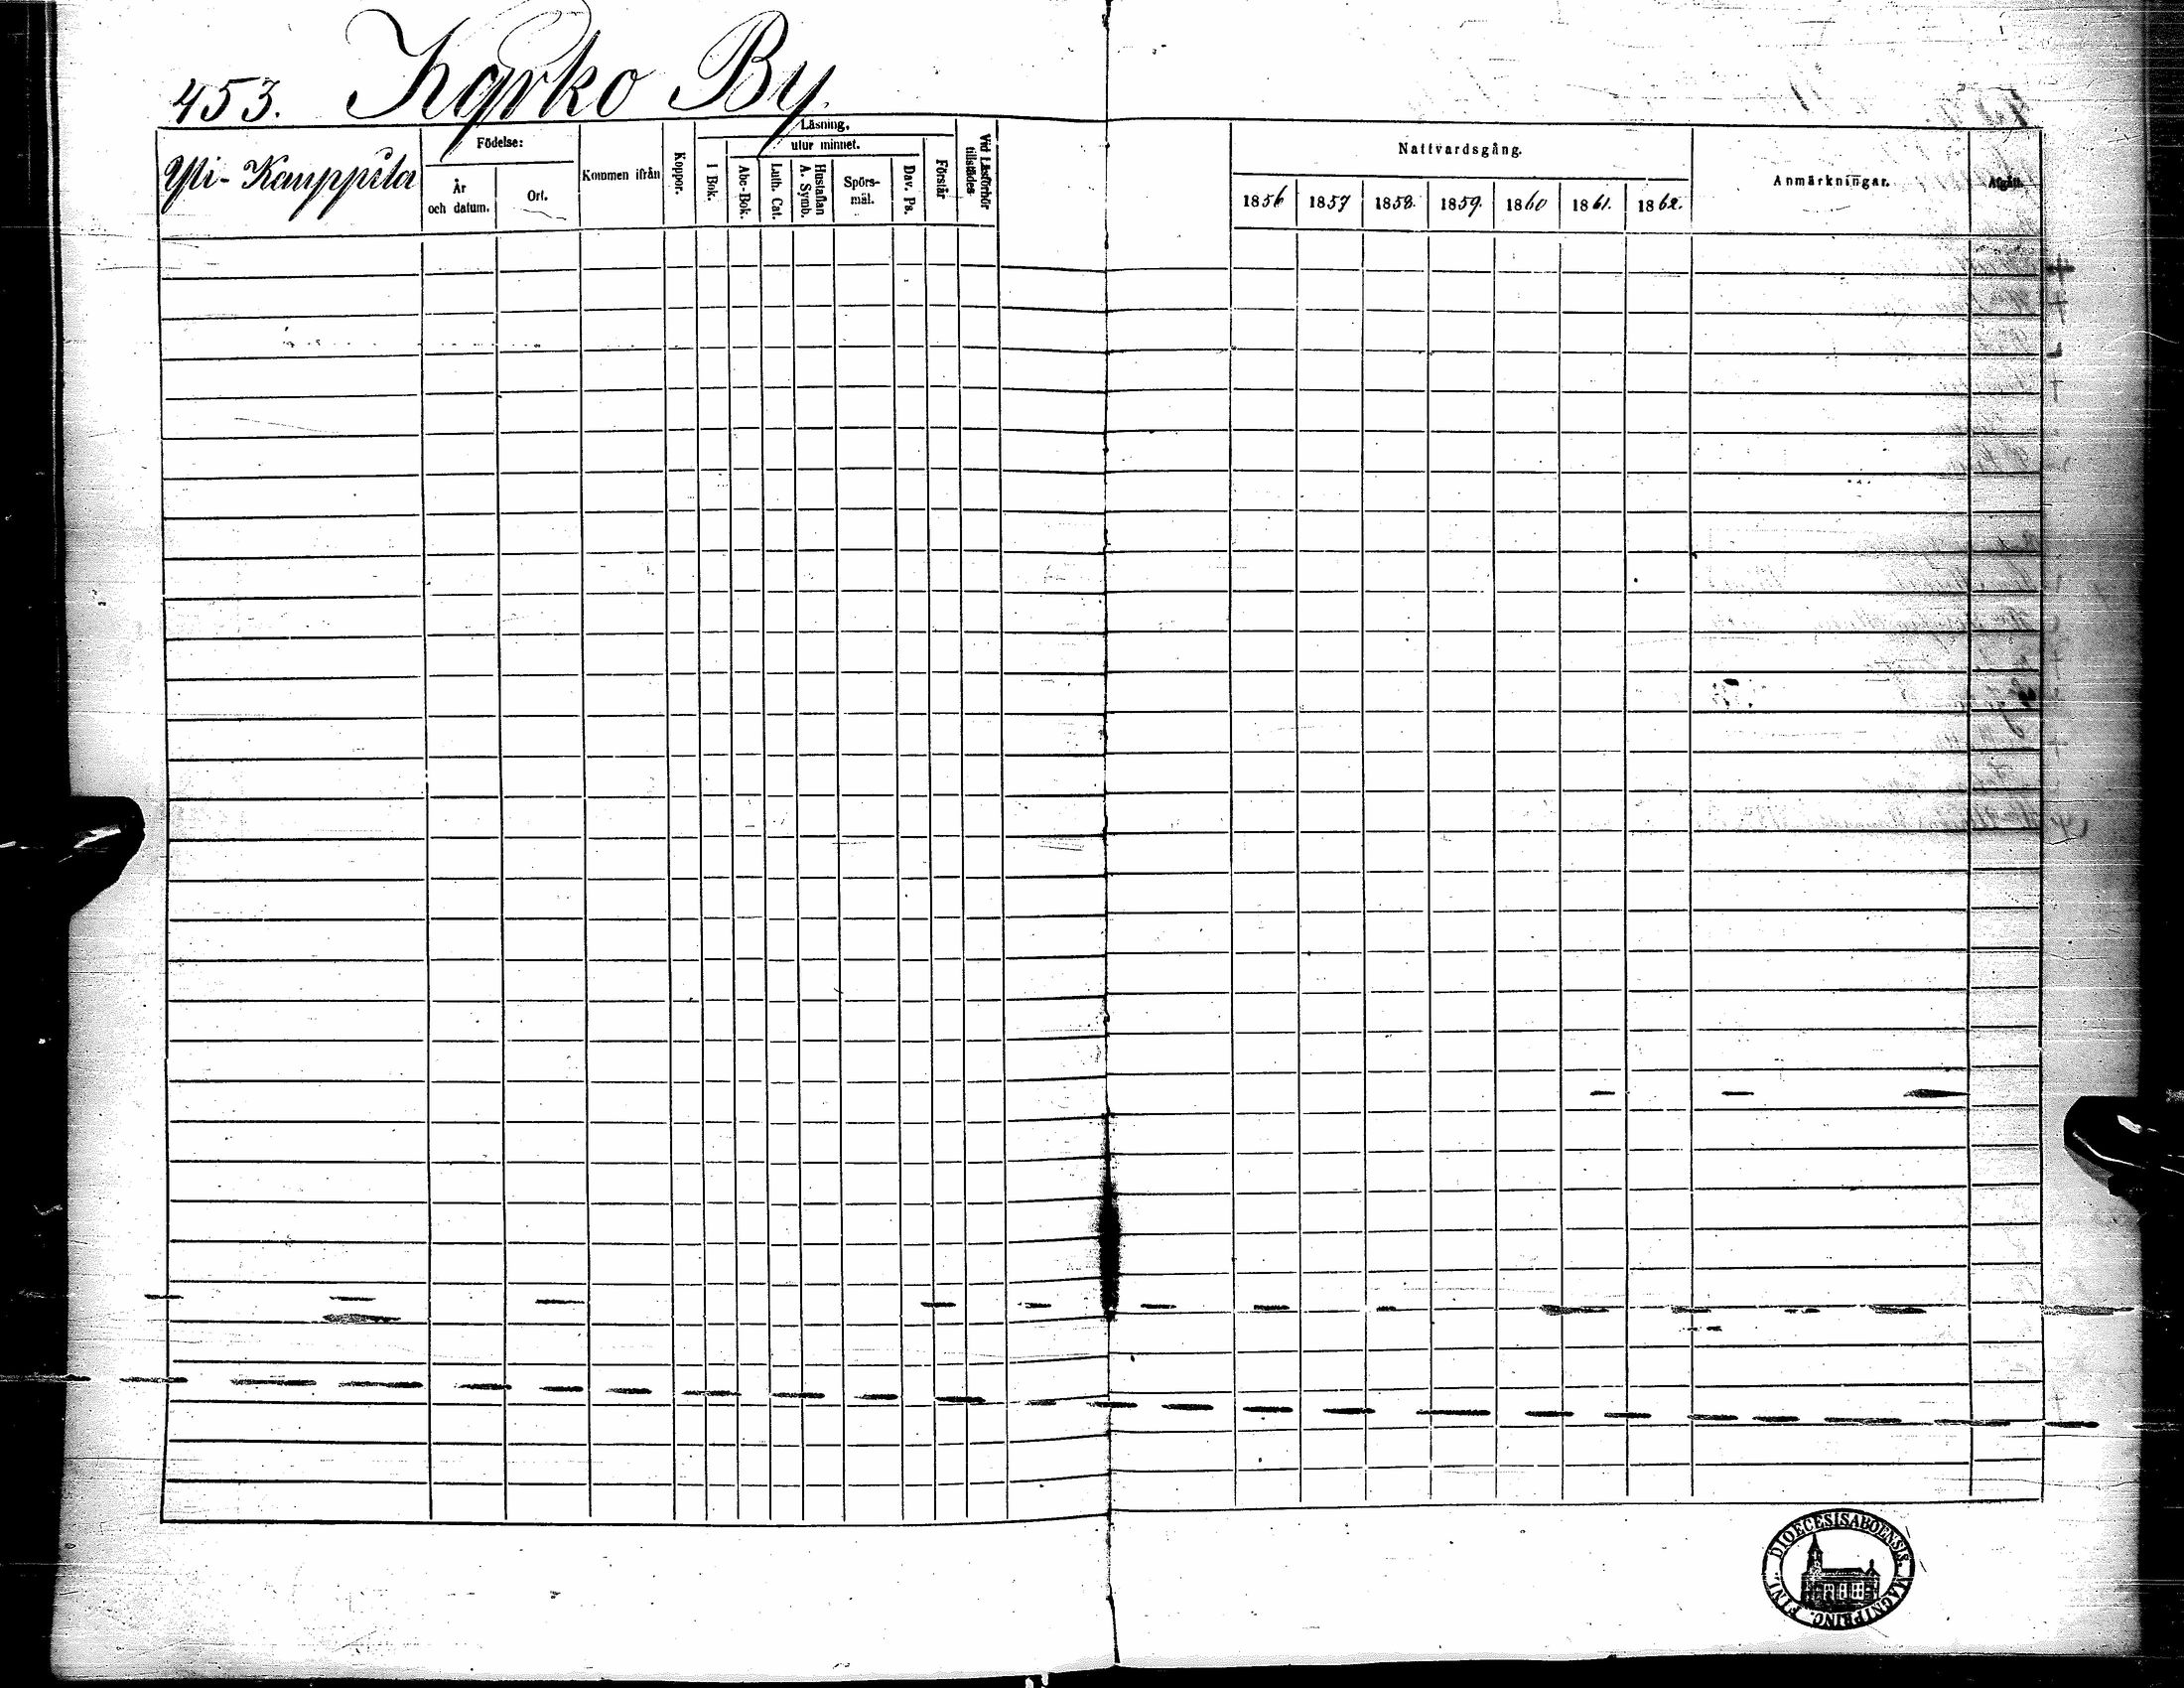 453. Karko By.
Yli-Kauppila
Födelse:
År
och datum.
Ort.
Kommen ifrån
Koppor.
Läsning,
utur minnet.
I Bok.
Abc-Bok.
Luth. Cat.
Hustaflan
A. Symb.
Spörs-
mål.
Dav. Ps.
Förstår
Vid Läsförhör
tillstädes
Nattvardsgång.
1856 1857 1858. 1859. 1860 1861. 1862.
Anmärkningar.
Afgått.
DIOECESIS ABOENSIS. MAGNI PRINC. FINL.